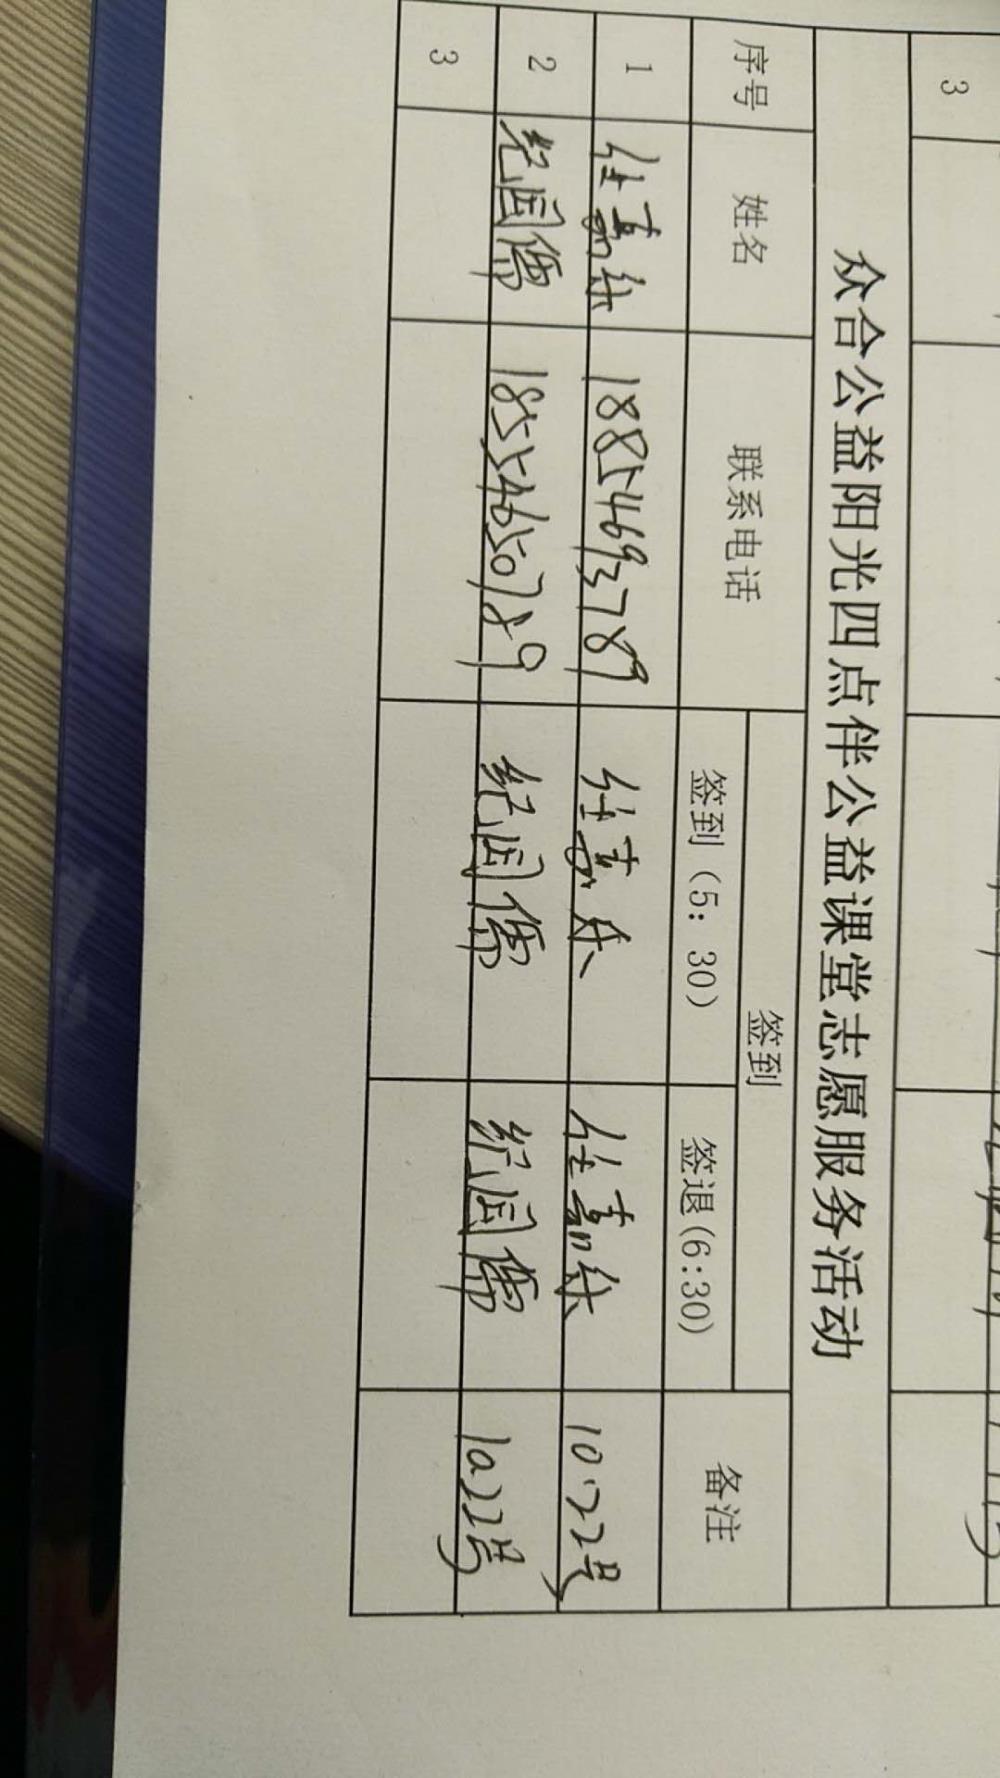 3
众合公益阳光四点伴公益课堂志愿服务活动
序号 姓名 联系电话 签到 备注
签到（5：30） 签退(6:30)
1 任嘉乐 18854693789 任嘉乐 任嘉乐 10.22号
2 纪闰儒 18554650789 纪闰儒 纪闰儒 10.22号
3